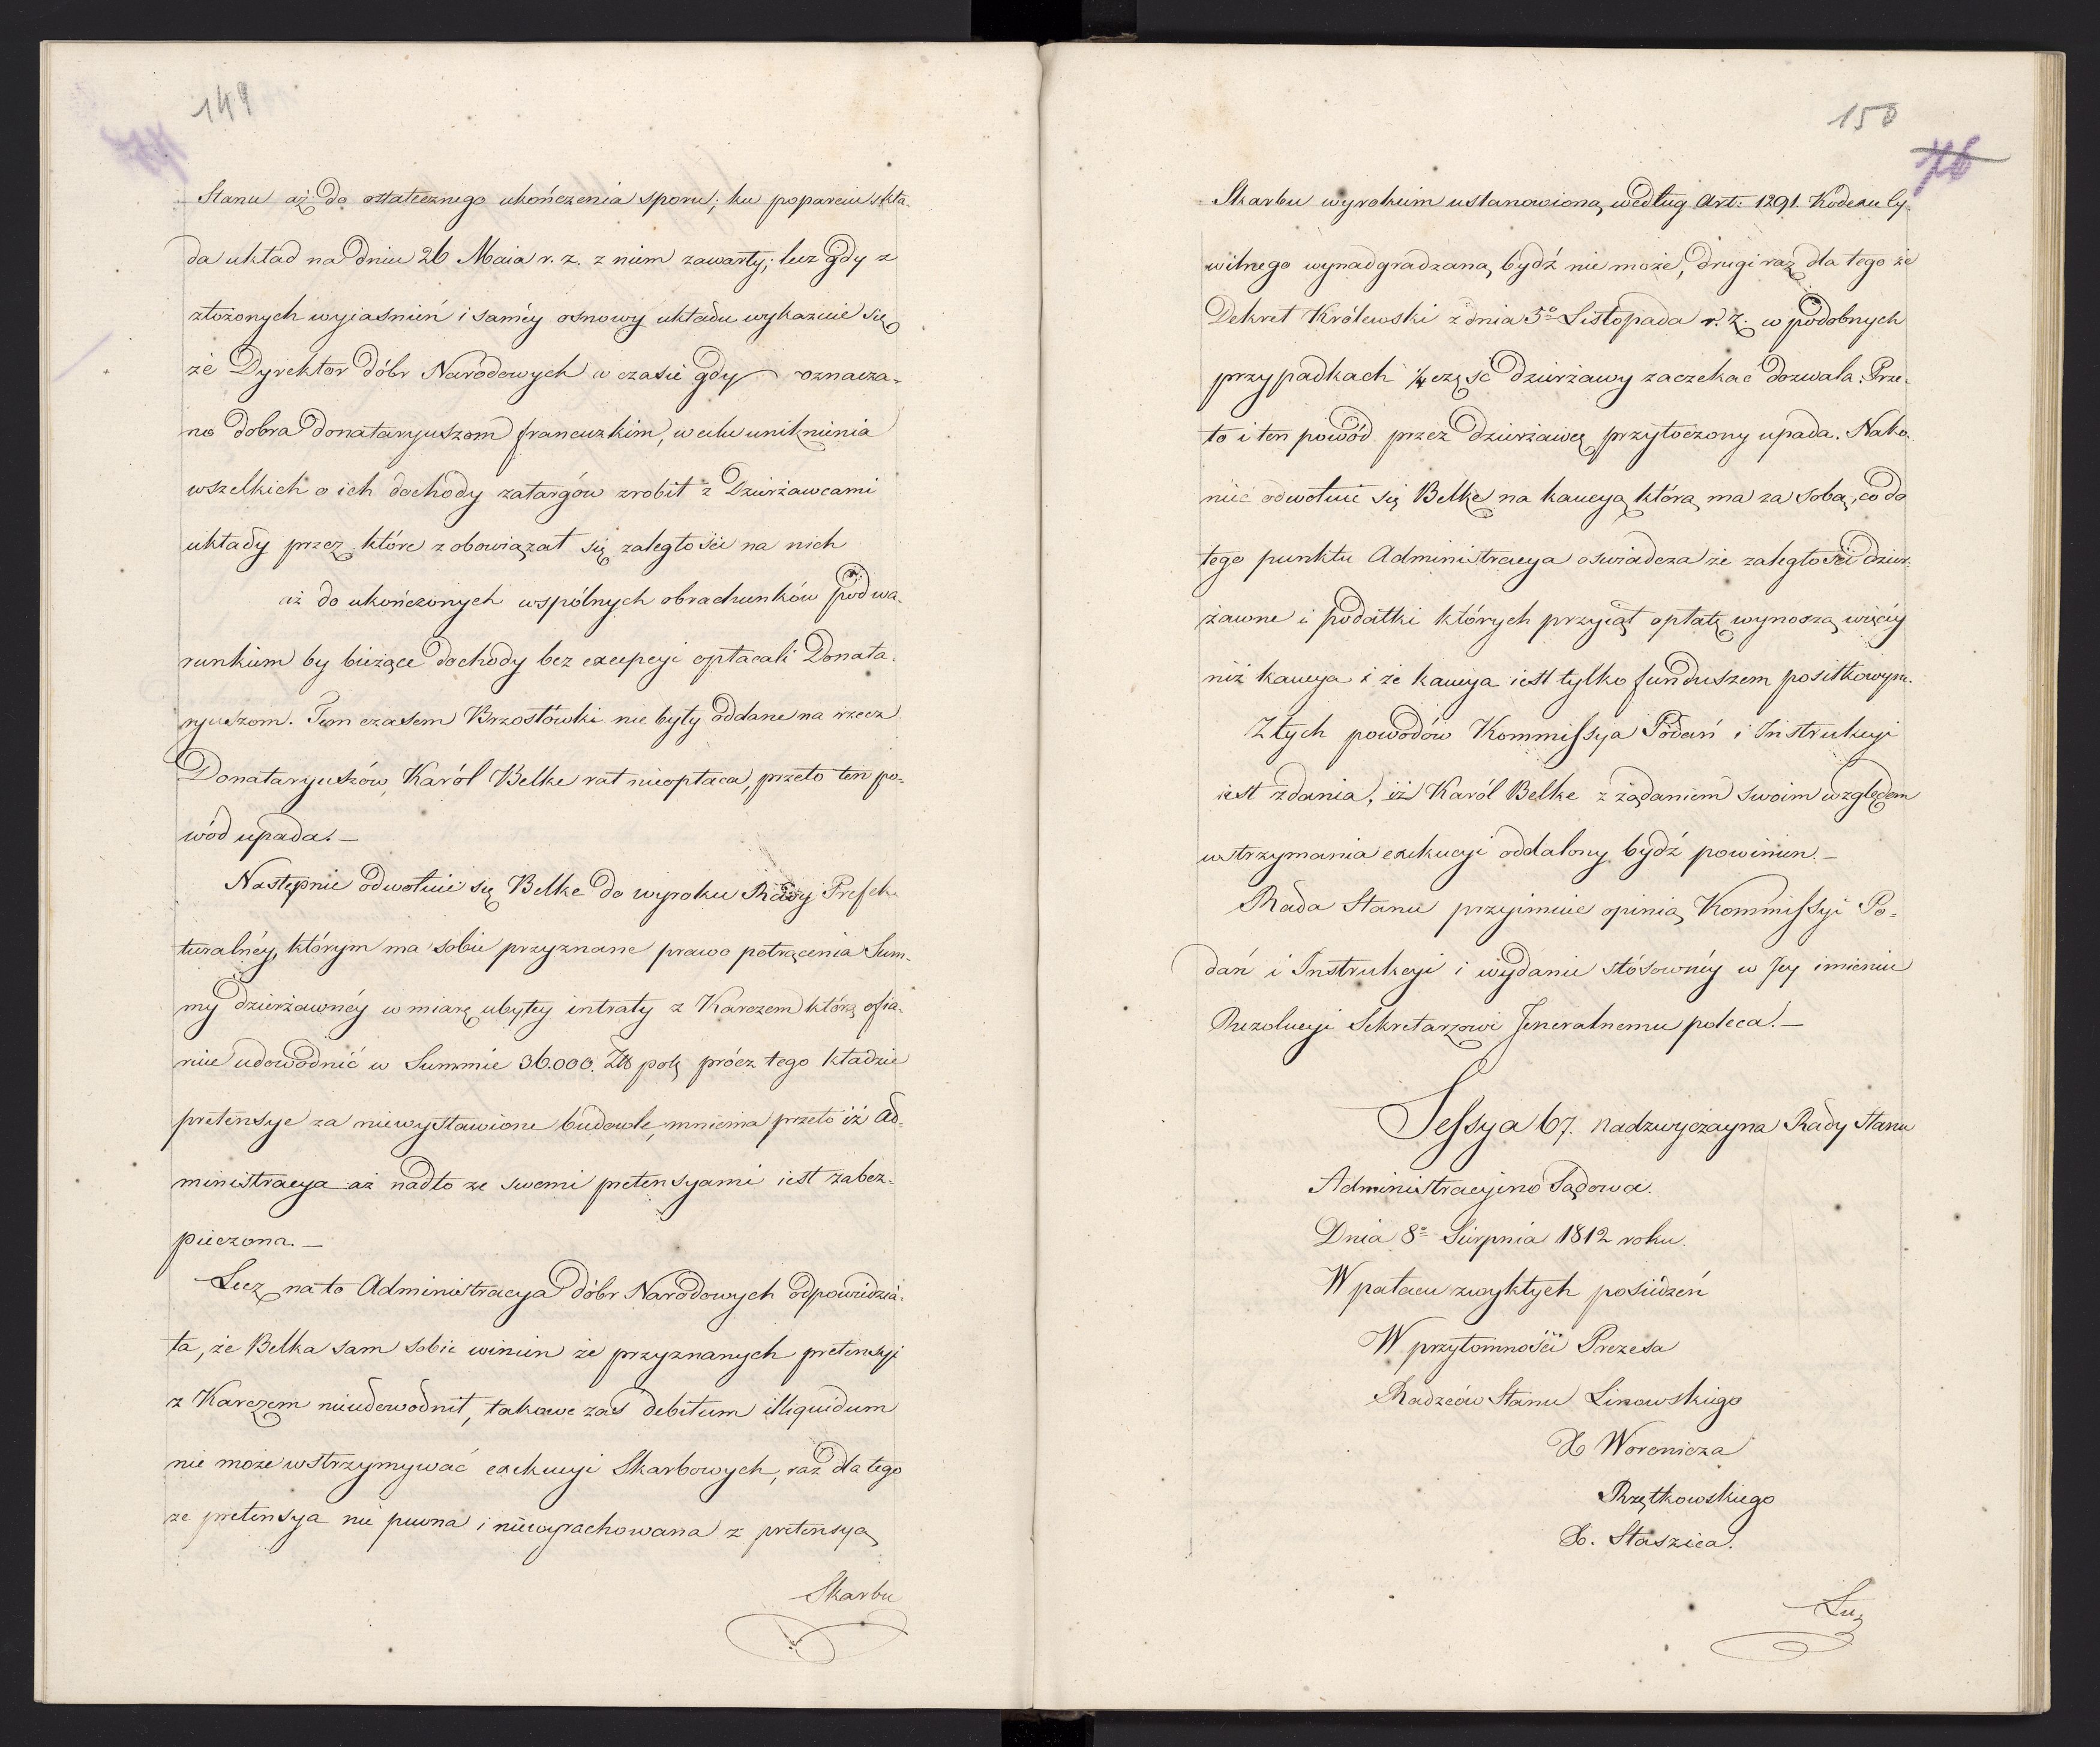 149
Stanu aż do ostatecznego ukończenia sporu; ku poparciu skła-
da układ na dniu 26 Maia r. z. z niem zawarty; lecz gdy z
złożonych wyiaśnień i saméy osnowy układu wykazuie się
że Dyrektor dóbr Narodowych w czasie gdy oznacza-
no dobra donataryuszom francuzkim, w celu uniknienia
wszelkich o ich dochody zatargów zrobił z Dzierżawcami
układy przez które zobowiązał się zaległości na nich
aż do ukończonych wspólnych obrachunków pod wa-
runkiem by bieżące dochody bez excepcyi opłacali Donata-
ryuszom. Tem czasem Brzostówki nie były oddane na rzecz
Donataryuszów, Karól Belke rat nieopłaca, przeto ten po-
wód upada. —
Następnie odwołuie się Belke do wyroku Rady Prefek-
turalnéy, którym ma sobie przyznane prawo potrącenia Sum-
my dzierżawnéy w miarę ubyłey intraty z Karczem którą ofia-
ruie udowodnić w Summie 36.000. Zł pol: prócz tego kładzie
pretensye za niewystawione budowle, mniema przeto iż Ad-
ministracya aż nadto ze swemi pretensyami iest zabez-
pieczona. —
Lecz na to Administracya dóbr Narodowych odpowiedzia-
ła, że Belka sam sobie winien że przyznanych pretensyi
z Karczem nieudowodnił, takowe zaś debitum illiquidum
nie może wstrzymywać exekucyi Skarbowych, raz dla tego
że pretensya nie pewna i niewyrachowana z pretensyą
Skarbu
150
76
Skarbu wyrokiem ustanowioną według Art: 1291. Kodexu Cy-
wilnego wynadgradzaną bydź nie może, drugi raz dla tego że
Dekret Królewski z dnia 5º Listopada r. z. w podobnych
przypadkach ¼ część dzierżawy zaczekać dozwala. Prze-
to i ten powód przez dzierżawcę przytoczony upada. Nako-
niec odwołuie się Belke na kaucyą którą ma za sobą, co do
tego punktu Administracya oswiadcza że zaległości dzier-
żawne i podatki których przyiął opłatę wynoszą więcéy
niż kaucya i że kaucya iest tylko funduszem posiłkowym.
Z tych powodów Kommissya Podań i Instrukcyi
iest zdania, iż Karól Belke z żądaniem swoim względem
wstrzymania exekucyi oddalony bydź powinien. —
Rada Stanu przyimuie opinią Kommissyi Po-
dań i Instrukcyi i wydanie stósownéy w Jey imieniu
Rezolucyi Sekretarzowi Jeneralnemu poleca. —
Sessya 67. nadzwyczayna Rady Stanu
Administracyino Sądowa.
Dnia 8º Sierpnia 1812 roku.
W pałacu zwykłych posiedzeń
W przytomności Prezesa
Radzców Stanu Linowskiego
X Woronicza
Rzętkowskiego
X. Staszica.